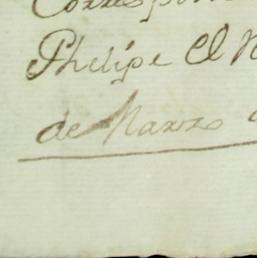 Correspon
Phelipe El
de Marzo